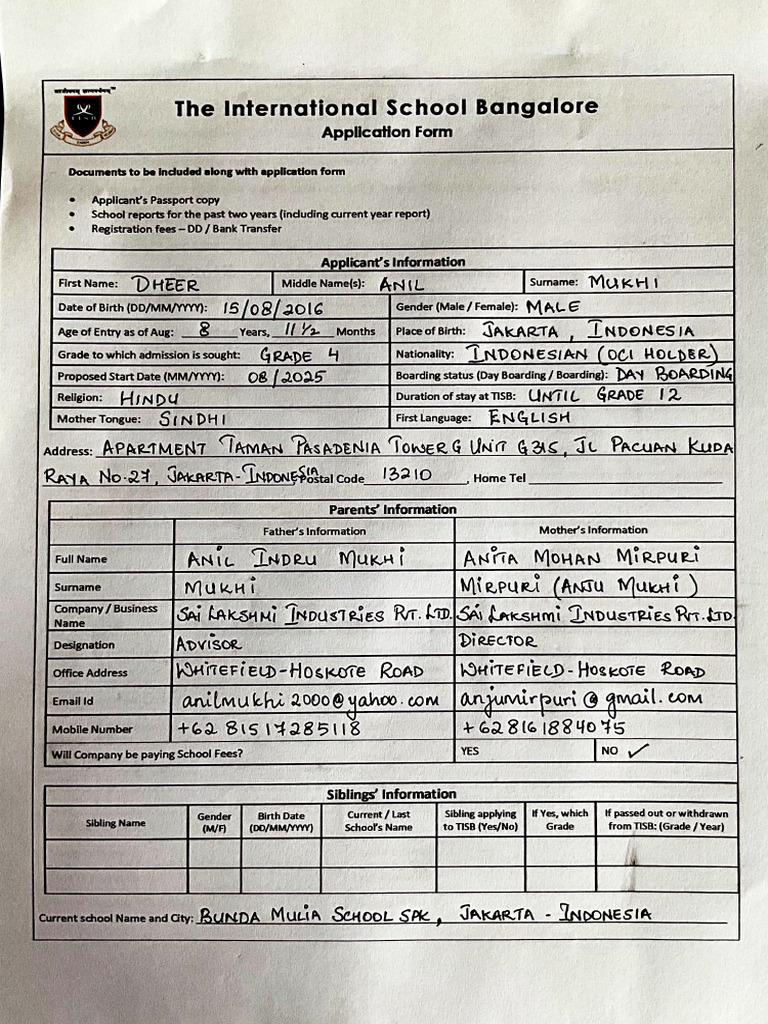 TISB
The International School Bangalore
Application Form
Documents to be included along with application form
• Applicant's Passport copy
• School reports for the past two years (including current year report)
• Registration fees – DD / Bank Transfer
Applicant's Information
First Name: DHEER Middle Name(s): ANIL Surname: MUKHI
Date of Birth (DD/MM/YYYY): 15/08/2016 Gender (Male / Female): MALE
Age of Entry as of Aug: 8 Years, 11 1/2 Months Place of Birth: JAKARTA, INDONESIA
Grade to which admission is sought: GRADE 4 Nationality: INDONESIAN (OCI HOLDER)
Proposed Start Date (MM/YYYY): 08/2025 Boarding status (Day Boarding / Boarding): DAY BOARDING
Religion: HINDU Duration of stay at TISB: UNTIL GRADE 12
Mother Tongue: SINDHI First Language: ENGLISH
Address: APARTMENT TAMAN PASADENIA TOWER G UNIT G315, JL PACUAN KUDA
RAYA NO.27, JAKARTA-INDONESIA Postal Code 13210, Home Tel
Parents' Information
Father's Information Mother's Information
Full Name ANIL INDRU MUKHI ANITA MOHAN MIRPURI
Surname MUKHI MIRPURI (ANJU MUKHI)
Company / Business Name SAI LAKSHMI INDUSTRIES PVT. LTD. SAI LAKSHMI INDUSTRIES PVT. LTD.
Designation ADVISOR DIRECTOR
Office Address WHITEFIELD-HOSKOTE ROAD WHITEFIELD-HOSKOTE ROAD
Email Id anilmukhi2000@yahoo.com anjumirpuri@gmail.com
Mobile Number +62 81517285118 +62 81618840 75
Will Company be paying School Fees? YES NO ✓
Siblings' Information
Sibling Name Gender (M/F) Birth Date (DD/MM/YYYY) Current / Last School's Name Sibling applying to TISB (Yes/No) If Yes, which Grade If passed out or withdrawn from TISB: (Grade / Year)
Current school Name and City: BUNDA MULIA SCHOOL SPK, JAKARTA - INDONESIA